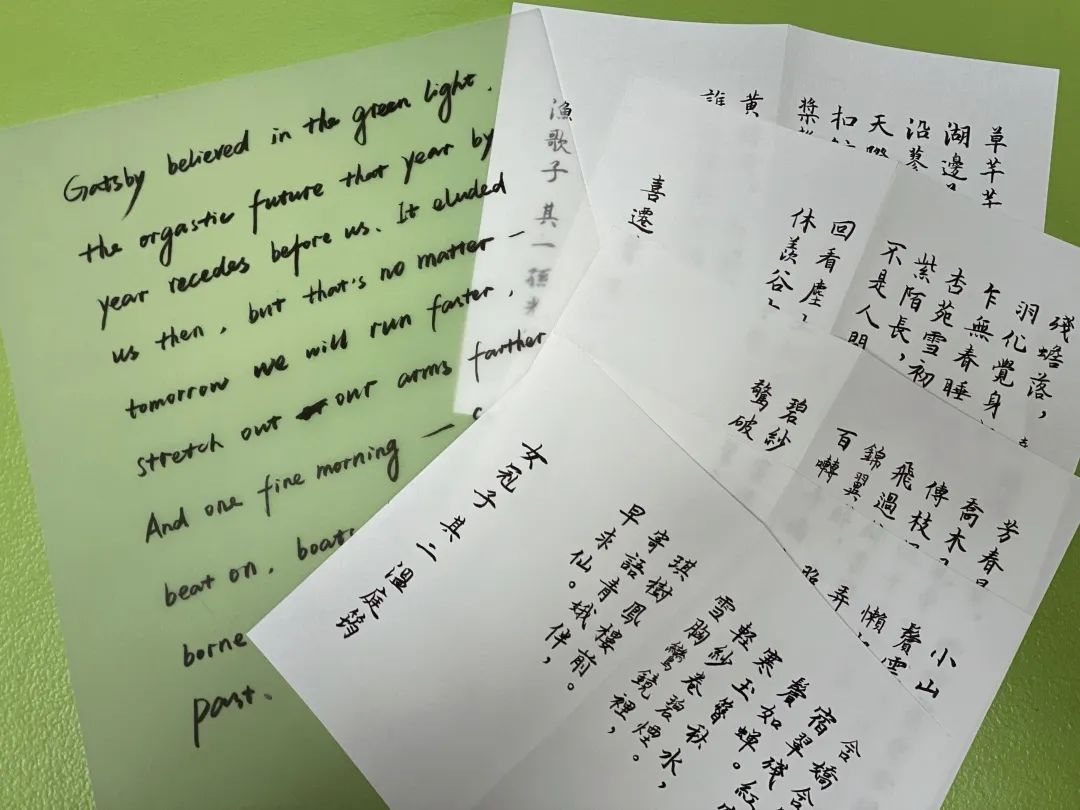 Gatsby believed in the green light,
the orgastic future that year by
year recedes before us. It eluded
us then, but that's no matter —
tomorrow we will run faster,
stretch out our arms farther
And one fine morning —
beat on, boats
borne
past.
草芊芊
湖邊
沿蓼
天
扣
槳
黃
誰
漁歌子 其一 孫光
殘蟾落,
羽化覺身
乍無春睡
杏苑雪初
紫陌長,
不是人間
回看塵
休羨谷
喜遷
芳春
喬木
傳枝
飛過
錦翼
百囀
碧紗
驚破
小山
鬢雲
懶
弄
含嬌含
宿翠殘紅
鬢如蟬。
寒玉簪秋水,
輕紗卷碧煙。
雪胸鸞鏡裡,
琪樹鳳樓前。
寄語青娥伴,
早求仙。
女冠子 其二 溫庭筠